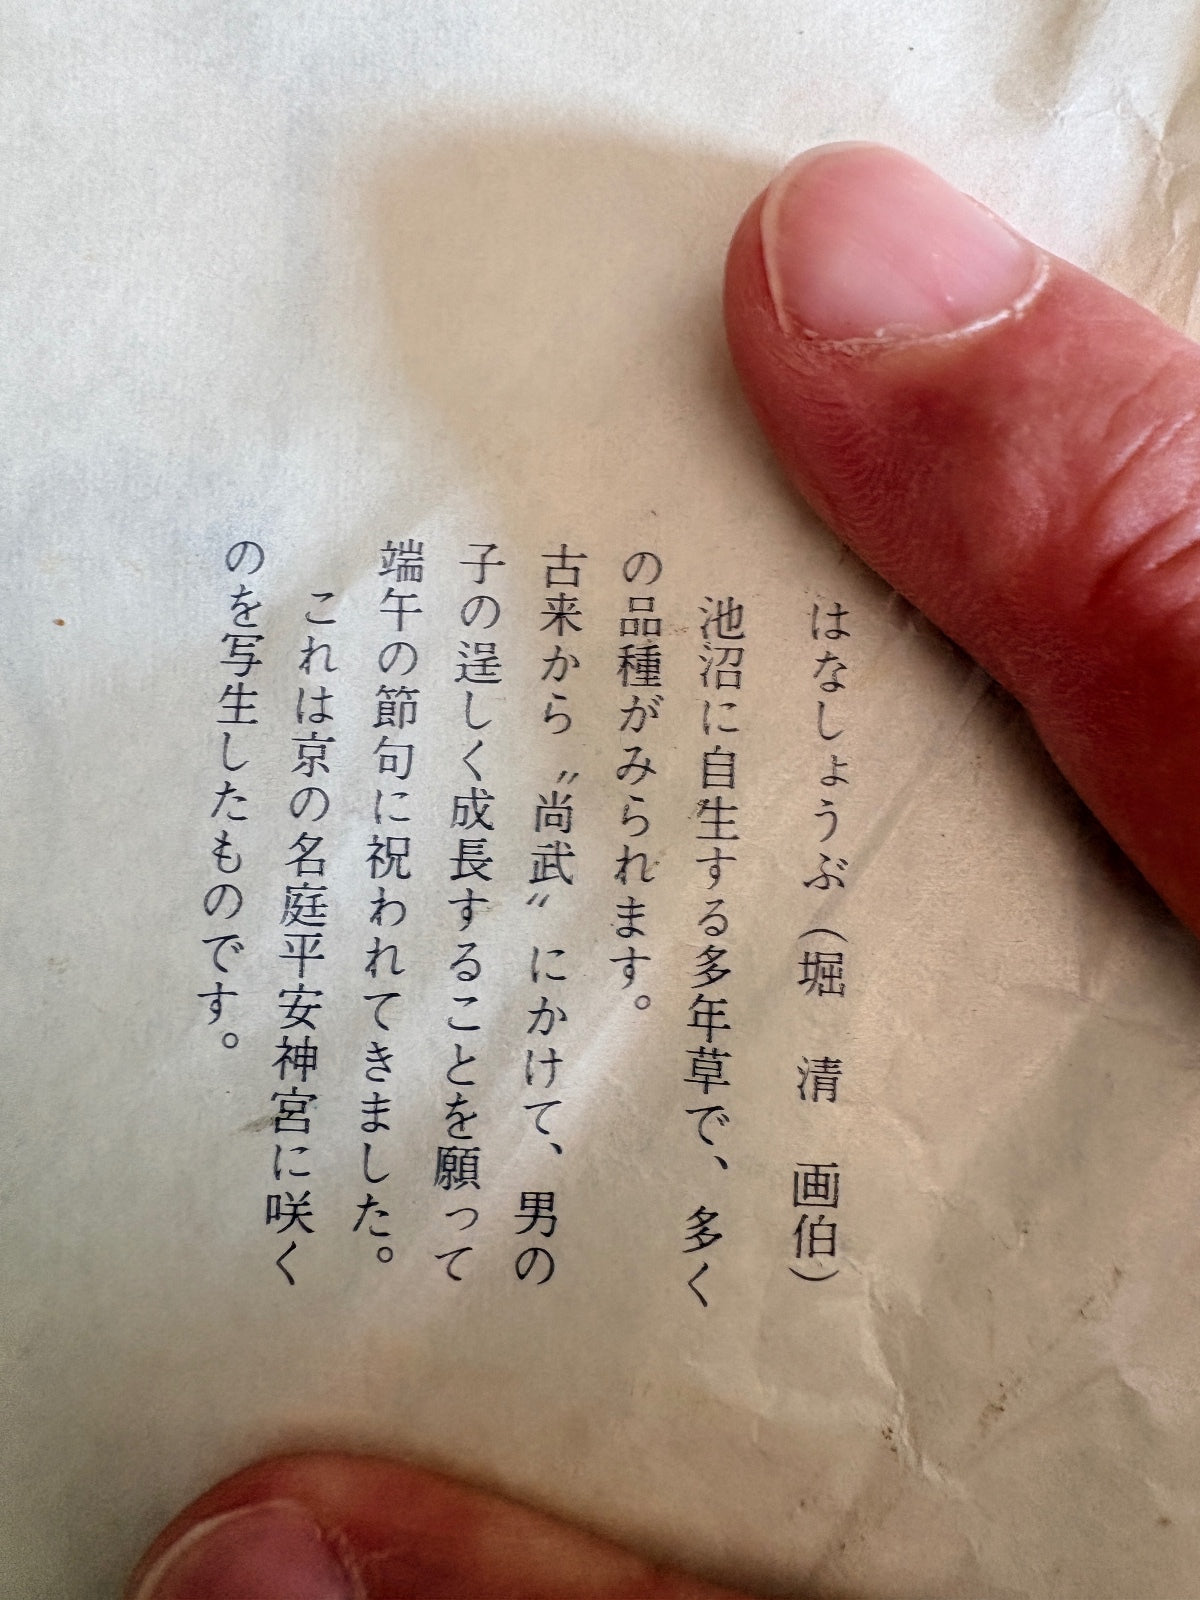 はなしょうぶ（堀　清　画伯）
　池沼に自生する多年草で、多く
の品種がみられます。
古来から〝尚武〟にかけて、男の
子の逞しく成長することを願って
端午の節句に祝われてきました。
　これは京の名庭平安神宮に咲く
のを写生したものです。